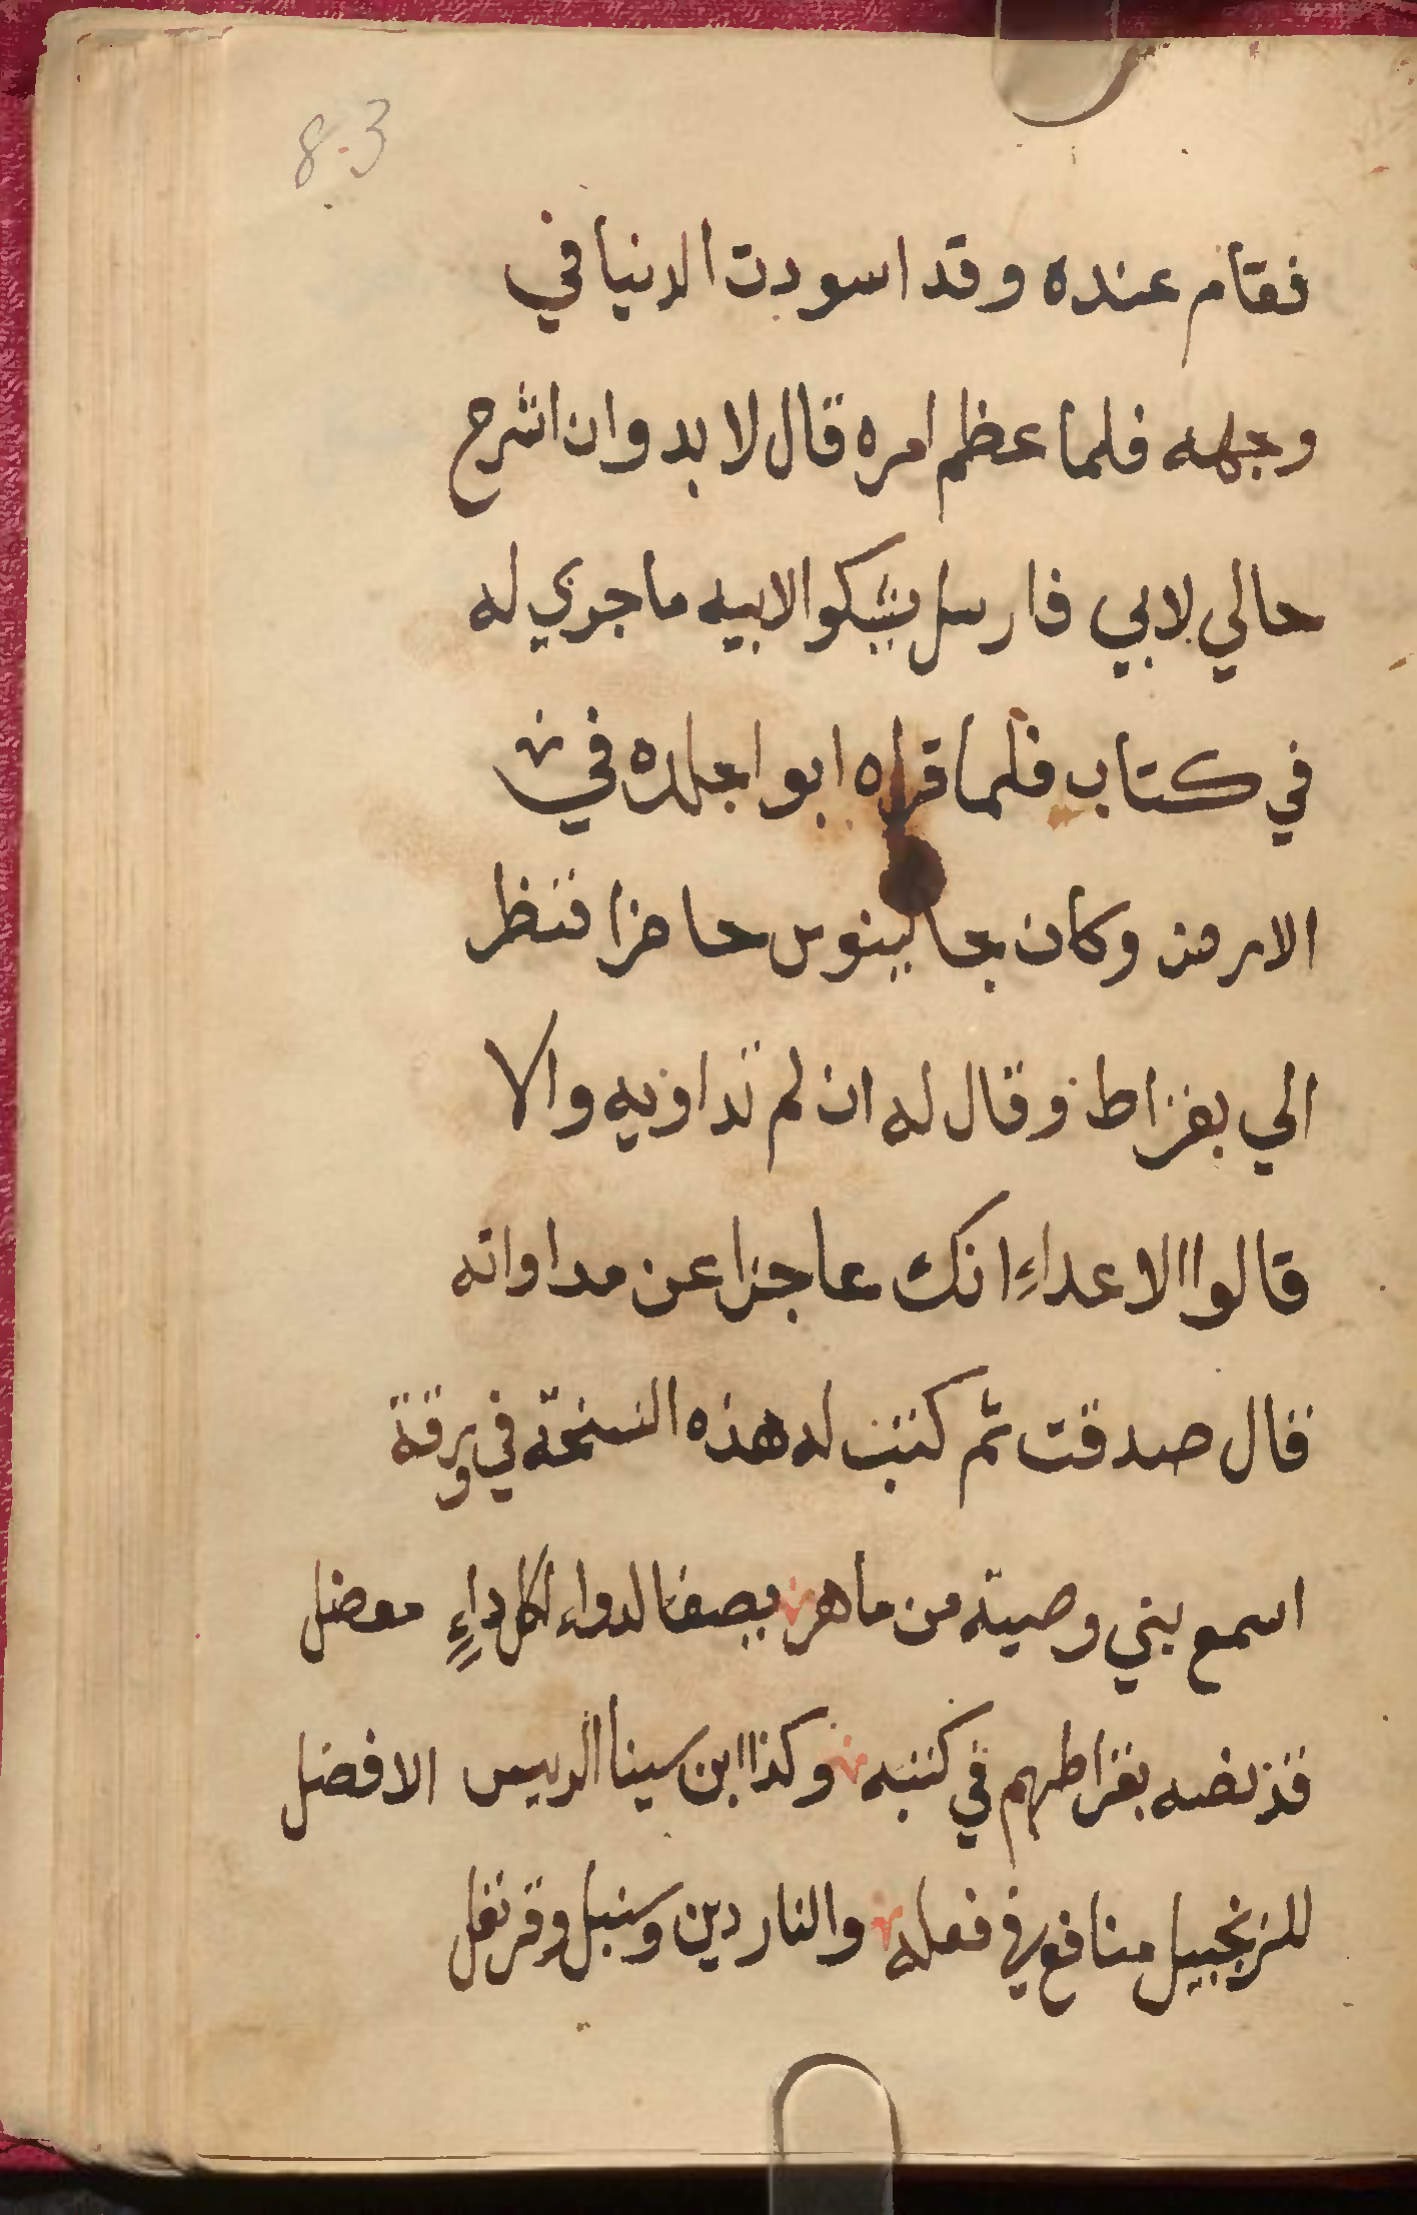 8.3
فقام عنده وقد اسودت الدنيا في
وجهه فلما عظم امره قال لا بد وان اشرح
حالي لابي فارسل يشكوا لابيه ما جري له
في كتاب فلما قراه ابوا جلده في
الارض وكان جالينوس حاضرا فنظر
الي بقراط وقال له ان لم تداويه والا
قالوا الاعداء انك عاجزا عن مداواته
فال صدقت ثم كتب له هذه النسخة في ورقة
اسمع بني وصية من ماهر يصف الدواء لكل داءٍ معضل
قد نصه بقراطهم في كتبه وكذا ابن سينا الريس الافضل
للزنجبيل منافع في فعله والناردين وسنبل وقرنفل